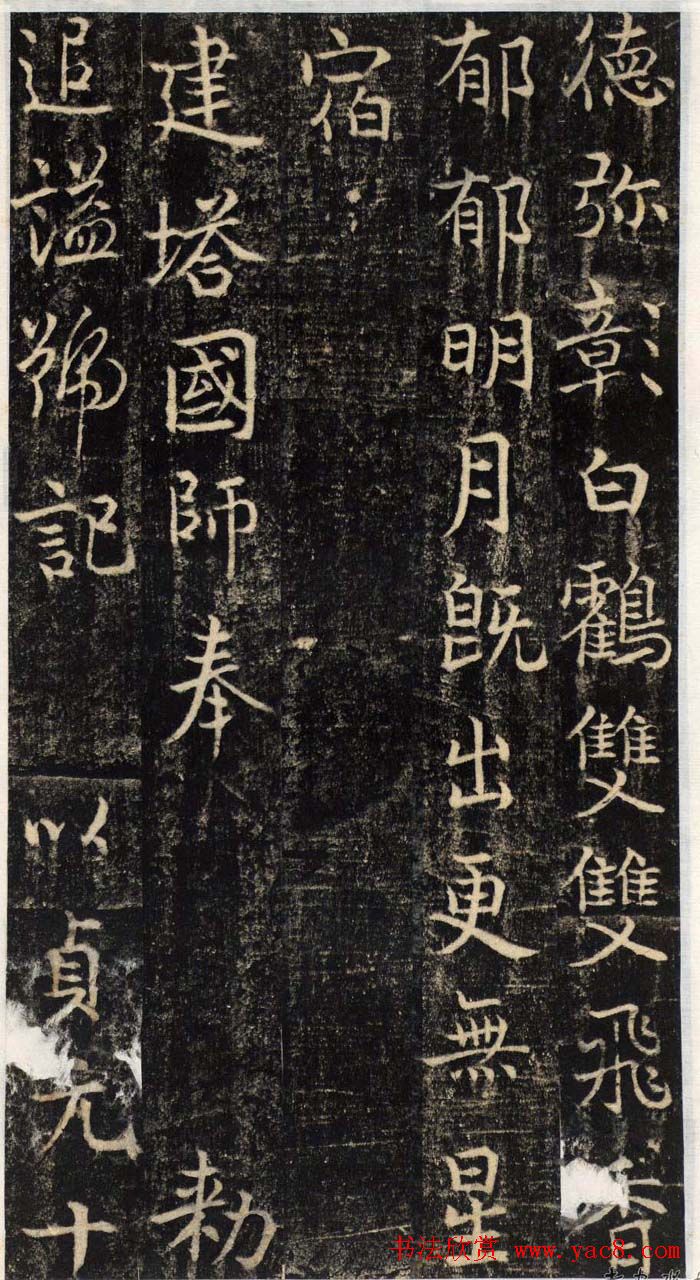 德弥彰白鸖雙雙飛香
郁郁明月既出更無星
宿
建塔國師奉 勑
追謚號記 以貞元十
书法欣赏 www.yac8.com